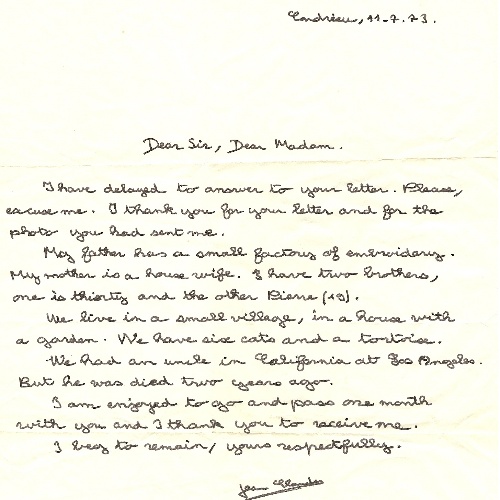 Condrieu, 11-7-73.
Dear Sir, Dear Madam.
I have delayed to answer to your letter. Please,
excuse me. I thank you for your letter and for the
photo you had sent me.
My father has a small factory of embroidery.
My mother is a house wife. I have two brothers,
one is thirty and the other Pierre (19).
We live in a small village, in a house with
a garden. We have six cats and a tortoise.
We had an uncle in California at Los Angeles.
But he was died two years ago.
I am enjoyed to go and pass one month
with you and I thank you to receive me.
I beg to remain, yours respectfully.